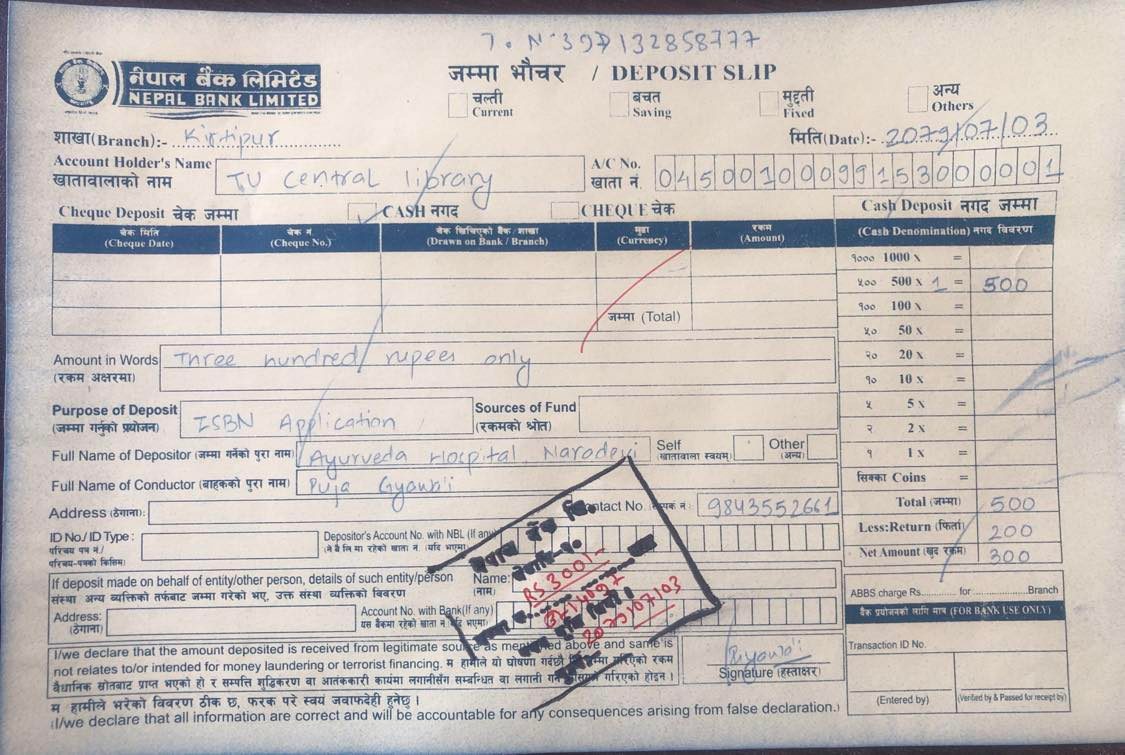 नेपाल बैंक लिमिटेड
NEPAL BANK LIMITED
जम्मा भौचर / DEPOSIT SLIP
चल्ती Current
बचत Saving
मुद्दती Fixed
अन्य Others
शाखा(Branch):- Kirtipur
मिति(Date):- 2079/07/03
Account Holder's Name
खातावालाको नाम
TU Central library
A/C No.
खाता नं.
04500100099153000001
Cheque Deposit चेक जम्मा
CASH नगद
CHEQUE चेक
Cash Deposit नगद जम्मा
चेक मिति (Cheque Date)
चेक नं (Cheque No.)
चेक खिचिएको बैंक / शाखा (Drawn on Bank / Branch)
मुद्रा (Currency)
रकम (Amount)
(Cash Denomination) नगद विवरण
१००० 1000 x =
५०० 500 x 1 = 500
१०० 100 x =
५० 50 x =
जम्मा (Total)
२० 20 x =
१० 10 x =
५ 5 x =
२ 2 x =
१ 1 x =
सिक्का Coins =
Total (जम्मा) 500
Less:Return (फिर्ता) 200
Net Amount (खुद रकम) 300
Amount in Words
(रकम अक्षरमा)
Three hundred rupees only
Purpose of Deposit
(जम्मा गर्नुको प्रयोजन)
ISBN Application
Sources of Fund
(रकमको श्रोत)
Full Name of Depositor (जम्मा गर्नेको पुरा नाम)
Ayurveda Hospital, Naradevi
Self
(खातावाला स्वयम्)
Other
(अन्य)
Full Name of Conductor (बाहकको पुरा नाम)
Puja Gyawali
Address (ठेगाना):
Contact No.
9843552661
ID No./ ID Type :
परिचय पत्र नं./
परिचय-पत्रको किसिम
Depositor's Account No. with NBL (If any)
नेपाल बैंक लि.
RS 300/-
2079/07/03
If deposit made on behalf of entity/other person, details of such entity/person
संस्था अन्य व्यक्तिको तर्फबाट जम्मा गरेको भए, उक्त संस्था व्यक्तिको विवरण
Name:
(नाम)
Address:
(ठेगाना)
Account No. with Bank(If any)
यस बैंकमा रहेको खाता नं (यदि भएमा)
ABBS charge Rs. for Branch
बैंक प्रयोजनको लागि मात्र (FOR BANK USE ONLY)
Transaction ID No.
(Entered by)
(Verified by & Passed for receipt by)
I/we declare that the amount deposited is received from legitimate source as mentioned above and same is
not relates to/or intended for money laundering or terrorist financing.
Signature (हस्ताक्षर)
म हामीले भरेको विवरण ठीक छ, फरक परे स्वयं जवाफदेही हुनेछु ।
(I/we declare that all information are correct and will be accountable for any consequences arising from false declaration.)